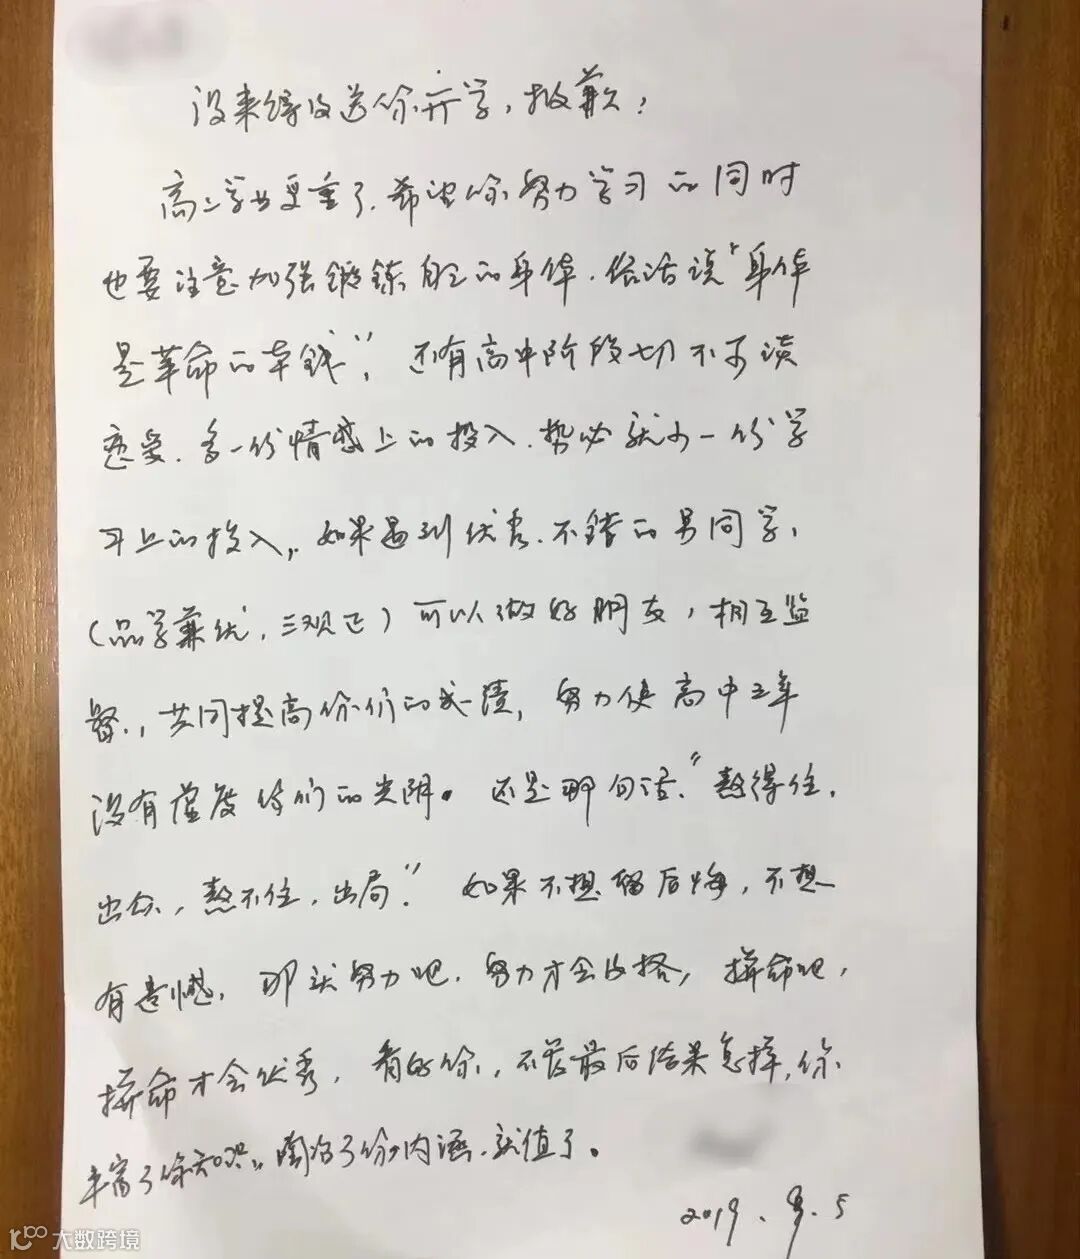 没来得及送你开学，抱歉！
高二学业更重了.希望你努力学习的同时
也要注意加强锻炼自己的身体.俗话说"身体
是革命的本钱"，还有高中阶段切不可谈
恋爱.多一份情感上的投入.势必就少一份学
习上的投入，如果遇到优秀.不错的男同学，
（品学兼优，三观正）可以做好朋友，相互监
督，共同提高你们的成绩，努力使高中三年
没有虚度你们的光阴。还是那句话，"熬得住，
出众，熬不住，出局"。如果不想留后悔，不想
有遗憾，那就努力吧.努力才会及格，拼命吧，
拼命才会优秀，看好你，不管最后结果怎样，你
丰富了你知识，陶冶了你内涵.就值了。
2019.9.5
大数跨境